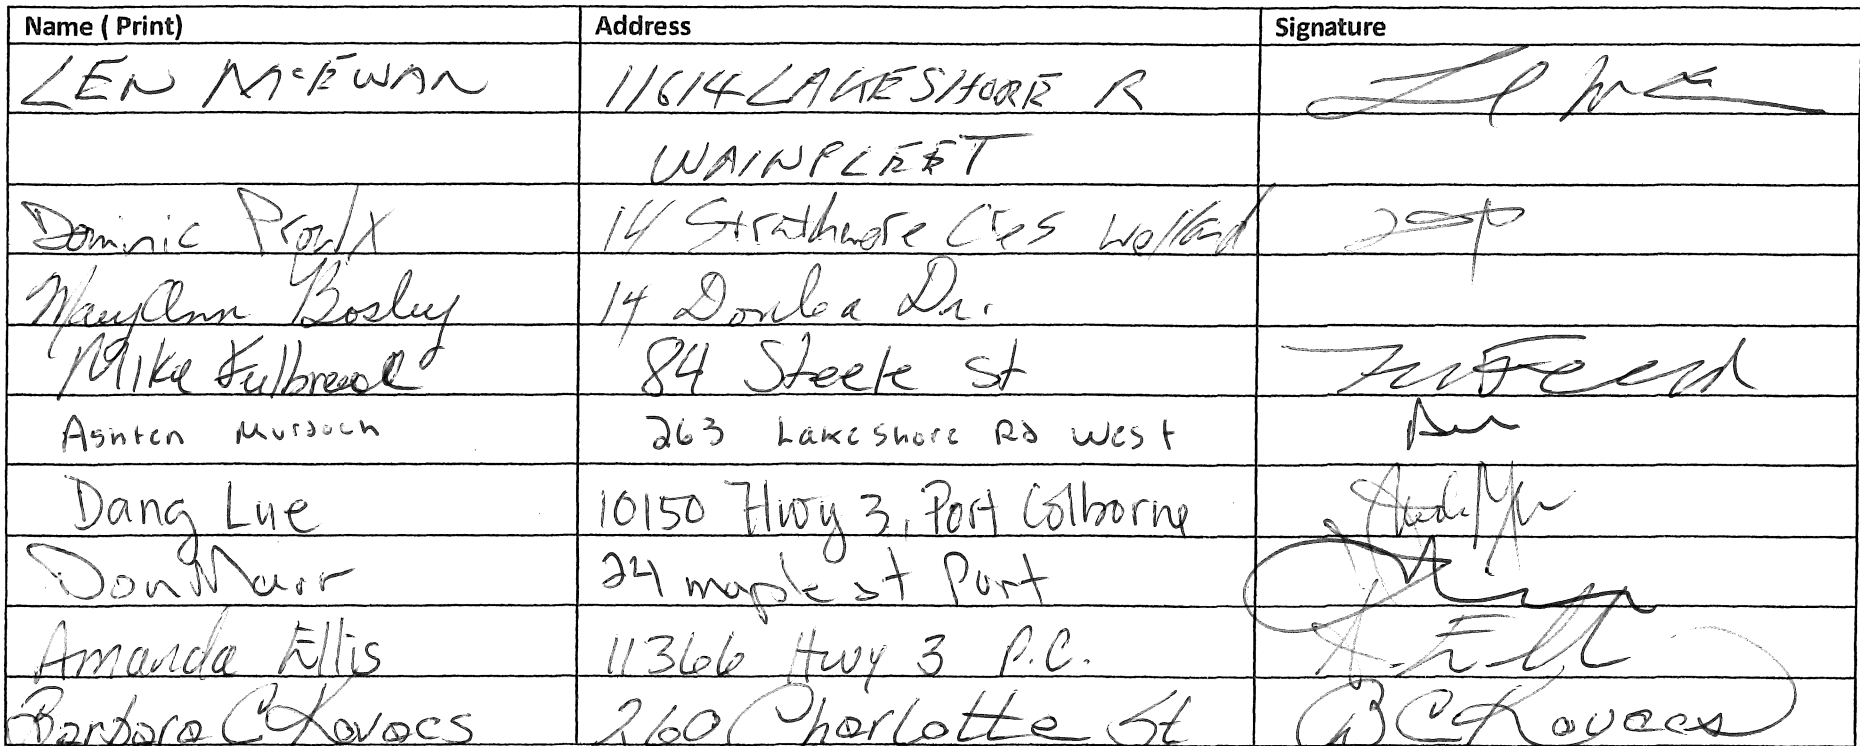 Name ( Print) Address Signature
LEN McEWAN 11614 LAKESHORE R
WAINFLEET
Dominic Proulx 14 Strathmore Cres Welland
MaryAnn Bosley 14 Donlea Dr.
Mike Fulbrook 84 Steele St
Ashten Murdoch 263 Lakeshore Rd West
Dang Lue 10150 Hwy 3, Port Colborne
Don Marr 24 maple st Port
Amanda Ellis 11366 Hwy 3 P.C. A. Ell
Barbara C Kovacs 260 Charlotte St B C Kovacs